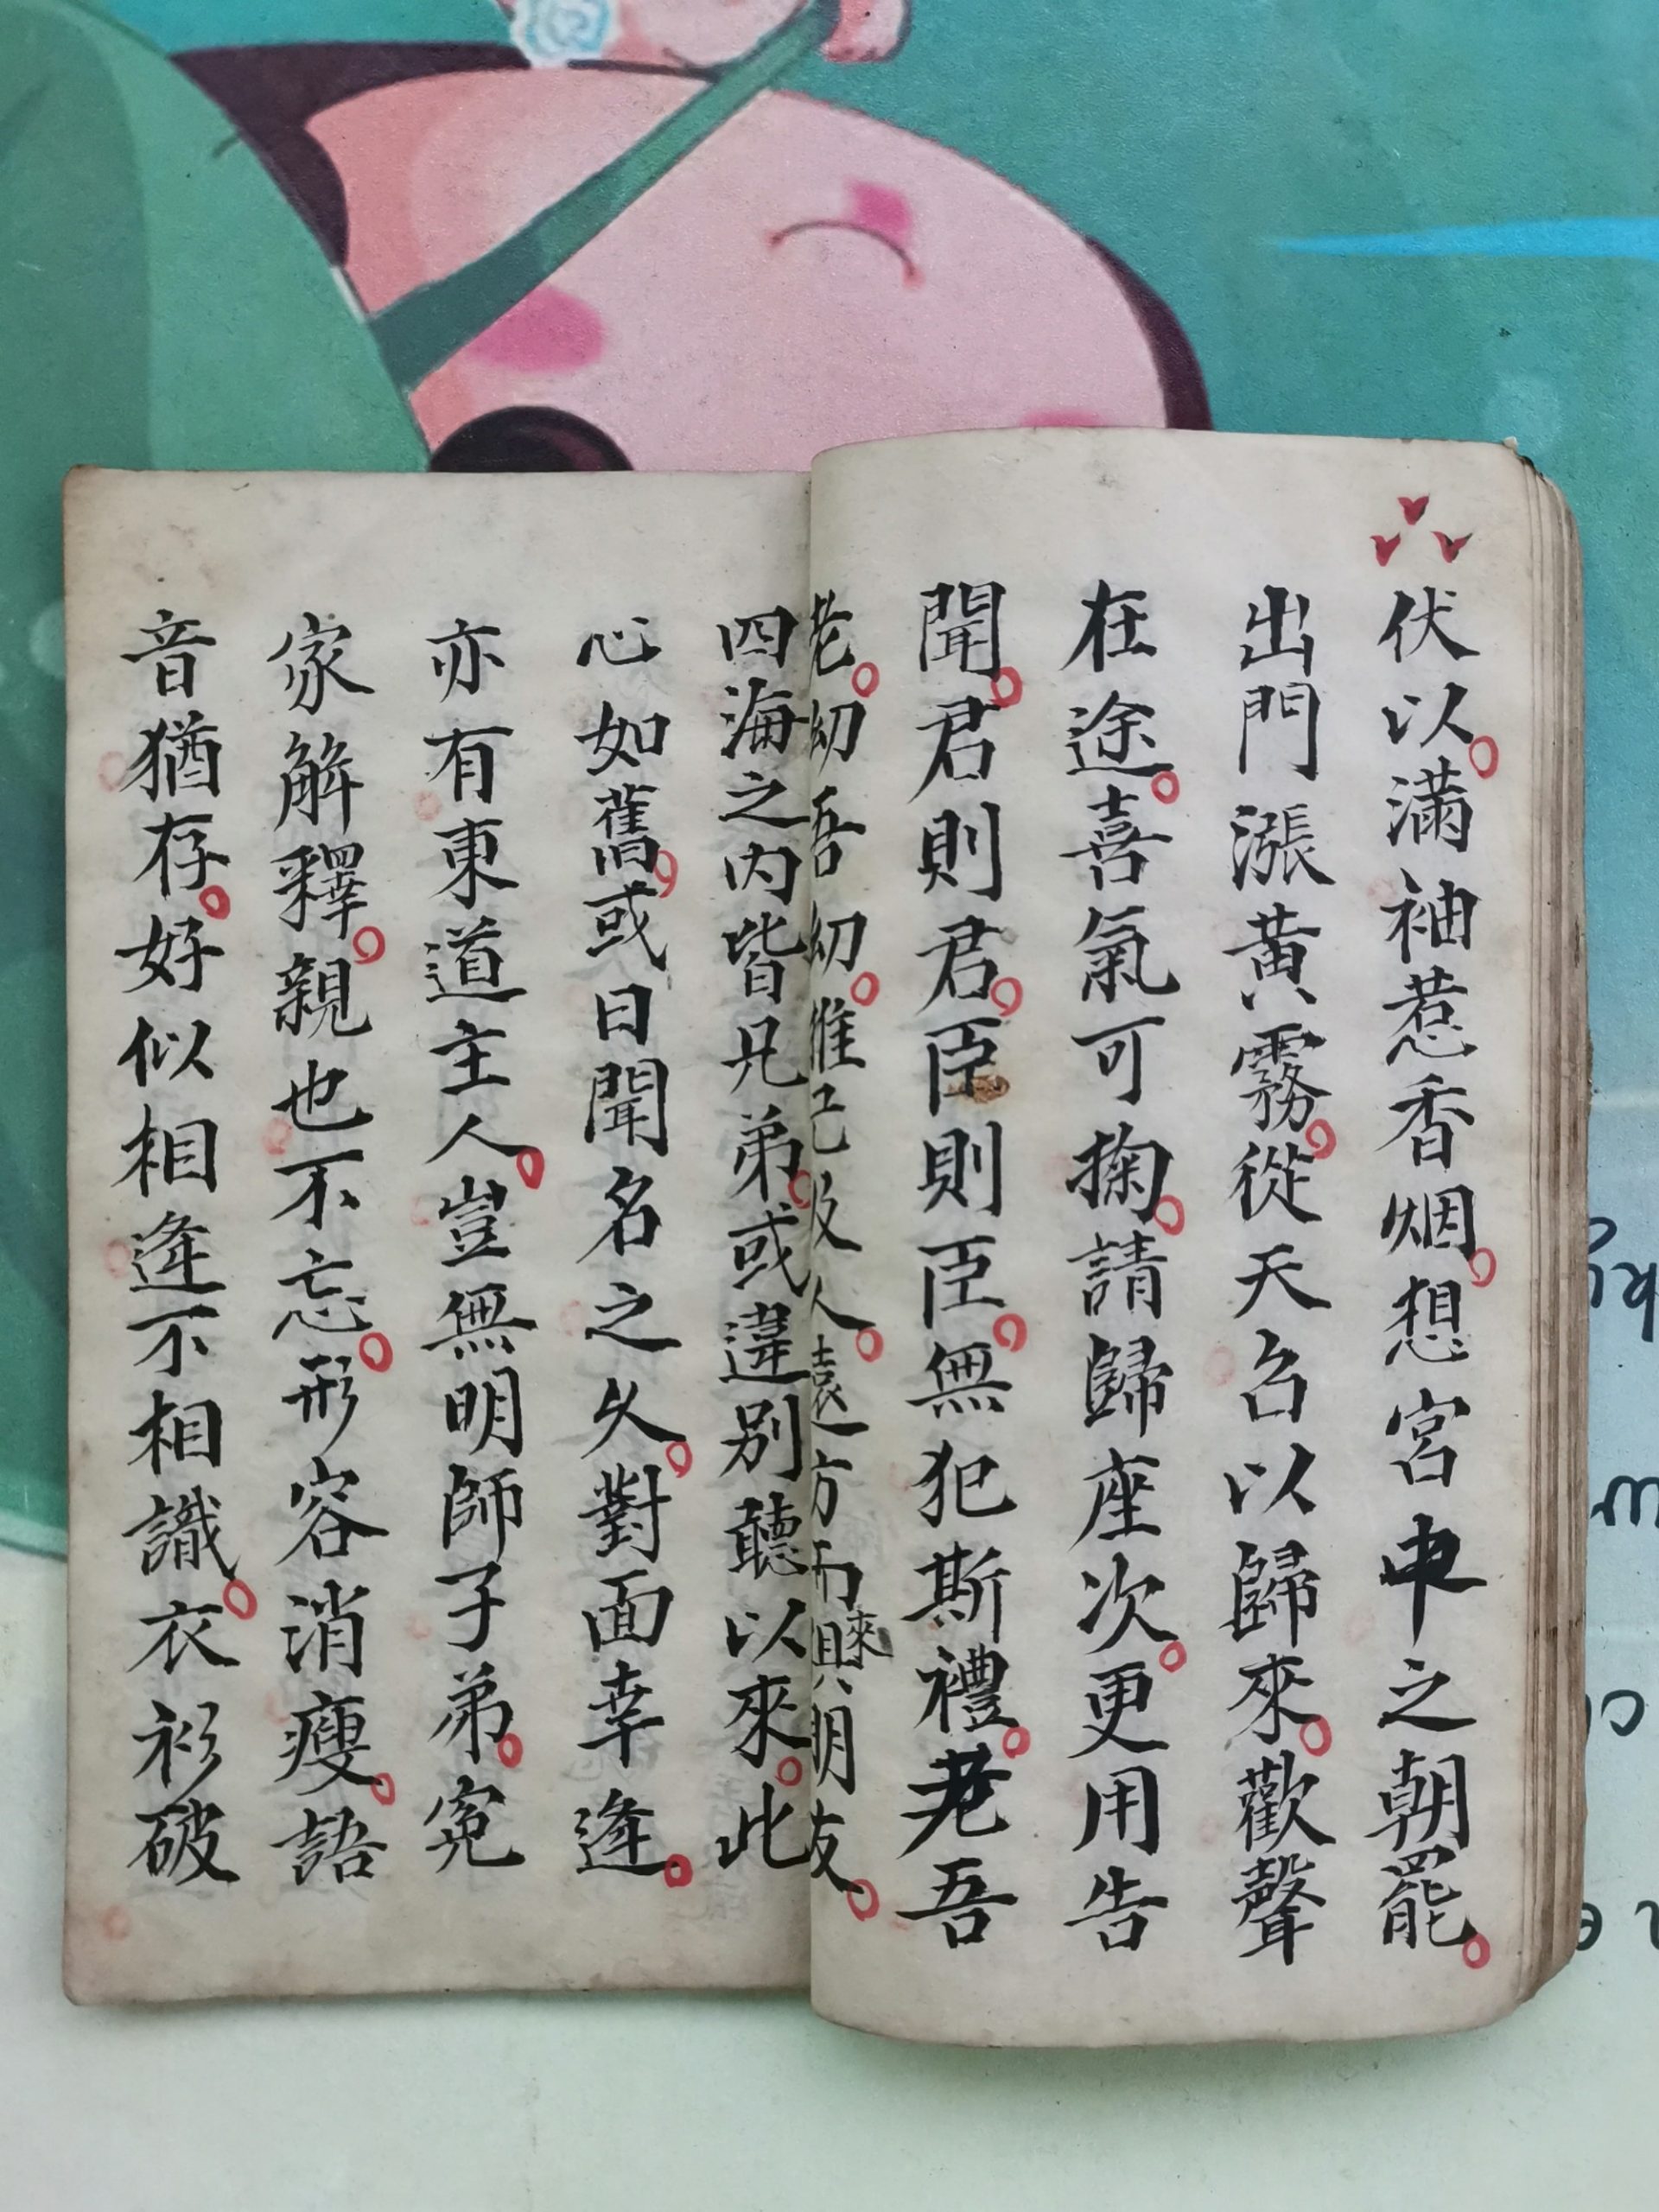 伏以滿袖惹香烟想宮中之朝罷
出門漲黃霧從天台以歸來歡聲
在途喜氣可掬請歸座次更用告
聞君則君臣則臣無犯斯禮老吾
老幼吾幼推己及人遠方而來與朋友
四海之内皆兄弟或違別聽以來此
心如舊或日聞名之久對面幸逢
亦有東道主人豈無明師子弟冤
家解釋親也不忘形容消瘦語
音猶存好似相逢不相識衣衫破